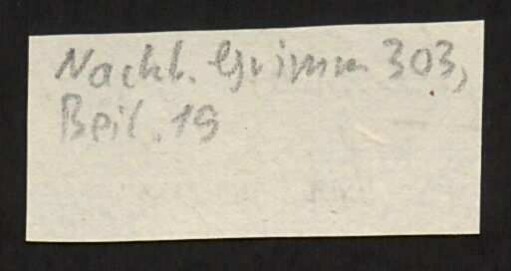 Nachl. Grimm 303,
Beil. 19